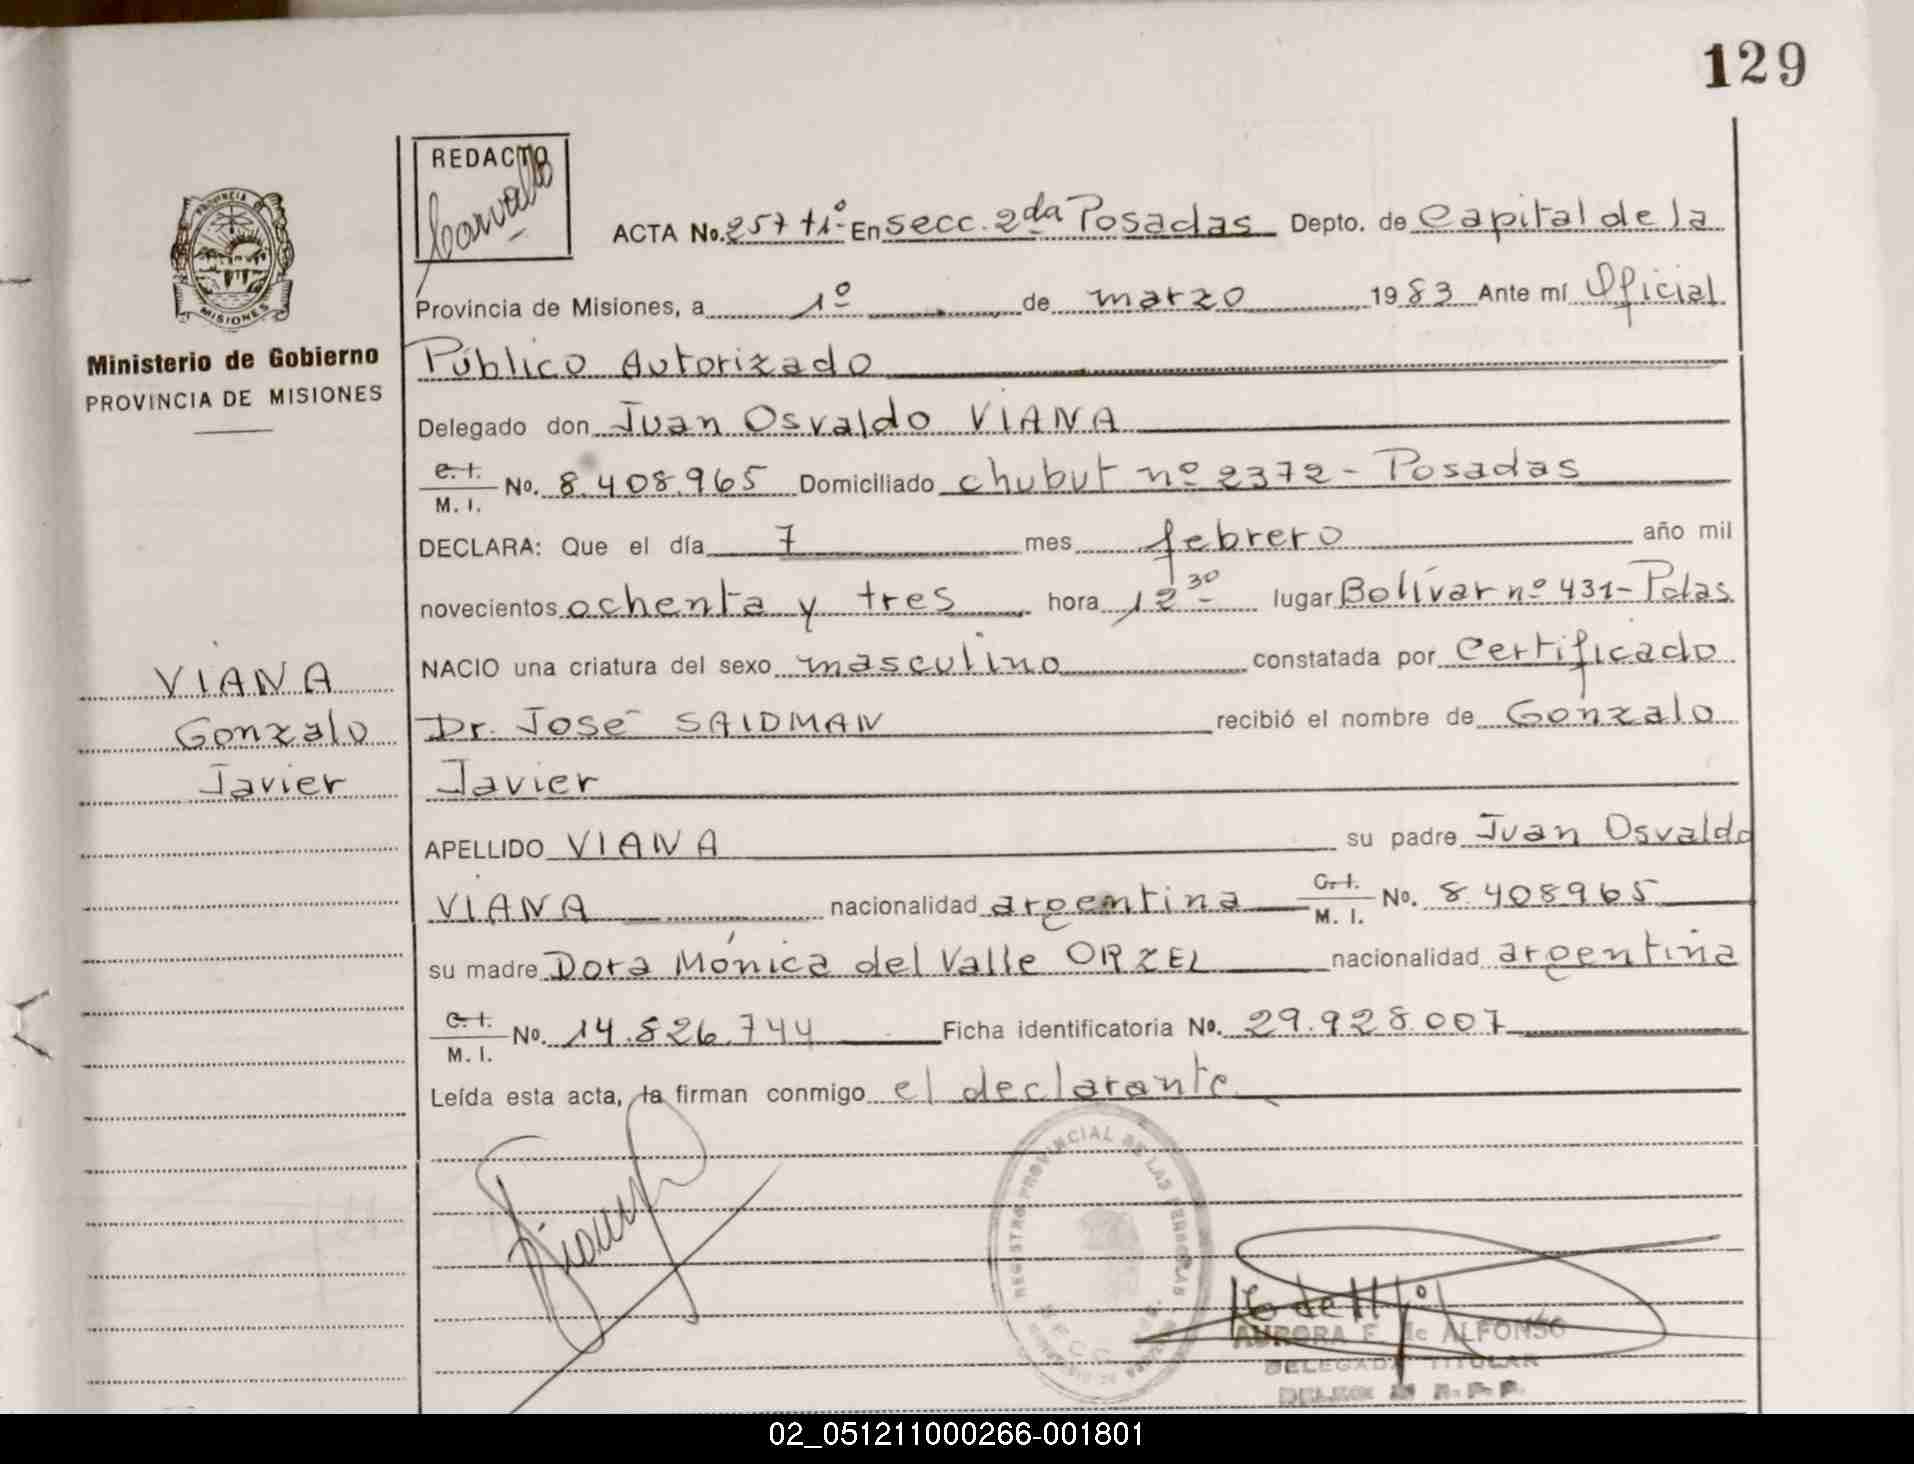 129
REDACTO
Carvallo
PROVINCIA DE
MISIONES
Ministerio de Gobierno
PROVINCIA DE MISIONES
ACTA No. 257 tº 1º En secc. 2da Posadas Depto. de Capital de la
Provincia de Misiones, a 1º de marzo 1983 Ante mí Oficial
Público Autorizado
Delegado don Juan Osvaldo VIANA
C. I.
M. I. No. 8.408.965 Domiciliado chubut nº 2372 - Posadas
DECLARA: Que el día 7 mes febrero año mil
novecientos ochenta y tres hora 12 30 lugar Bolívar nº 431 - Pdas
NACIO una criatura del sexo masculino constatada por Certificado
Dr. José SAIDMAN recibió el nombre de Gonzalo
Javier
APELLIDO VIANA su padre Juan Osvaldo
VIANA nacionalidad argentina C. I.
M. I. No. 8.408965
su madre Dora Mónica del Valle ORZEL nacionalidad argentina
C. I.
M. I. No. 14.826.744 Ficha identificatoria No. 29.928.007
Leída esta acta, la firman conmigo el declarante
VIANA
Gonzalo
Javier
REGISTRO PROVINCIAL DE LAS PERSONAS
AURORA E. de ALFONSO
DELEGADA TITULAR
02_051211000266-001801